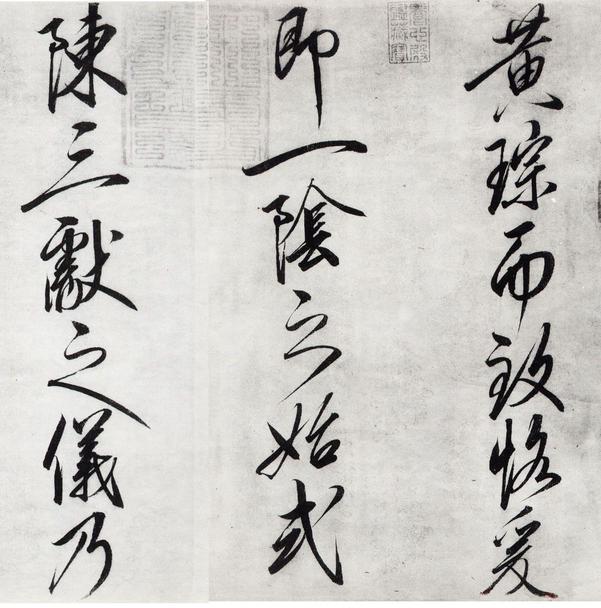 黃琮而致恪爰
即一陰之始式
陳三獻之儀乃